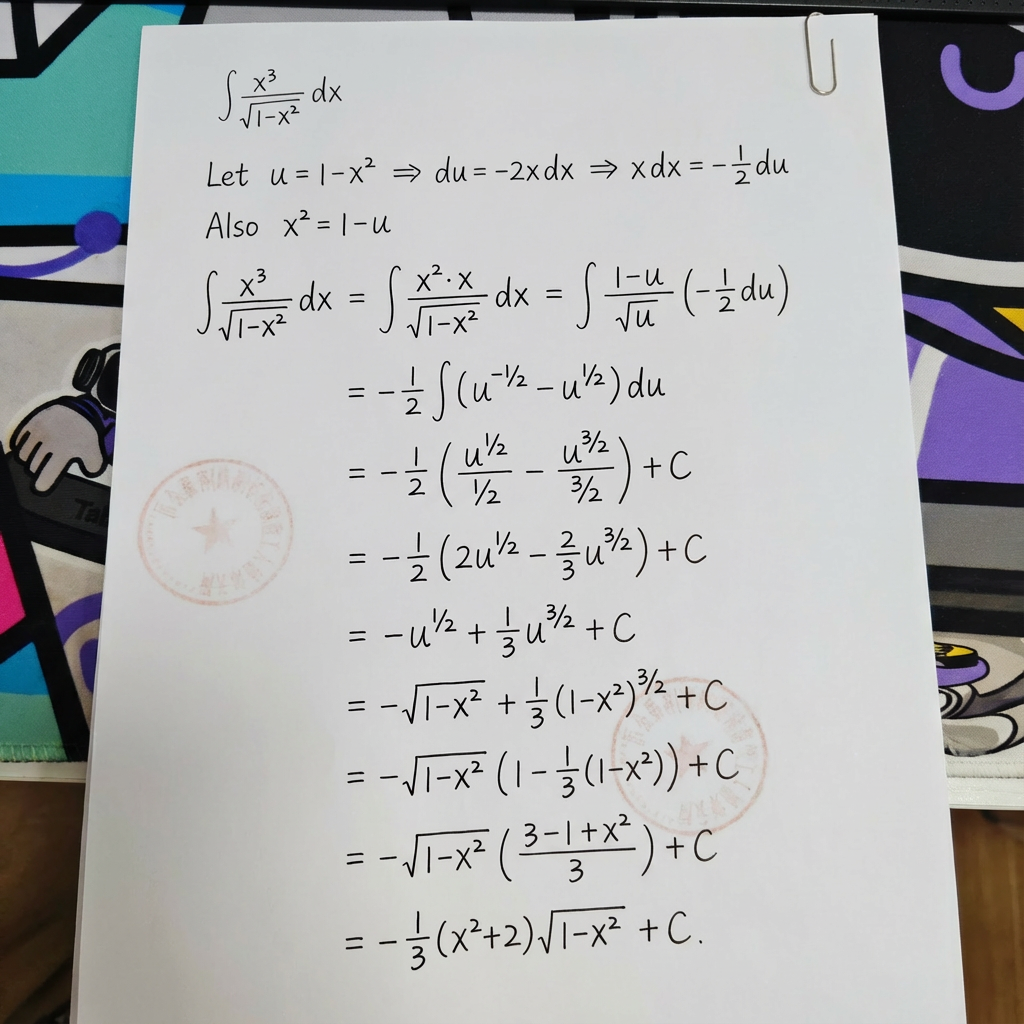 ∫ x³/√(1−x²) dx
Let u = 1−x² ⇒ du = −2x dx ⇒ x dx = −1/2 du
Also x² = 1−u
∫ x³/√(1−x²) dx = ∫ x²·x/√(1−x²) dx = ∫ (1−u)/√u (−1/2 du)
= −1/2 ∫(u^(−1/2) − u^(1/2)) du
= −1/2 (u^(1/2)/(1/2) − u^(3/2)/(3/2)) + C
= −1/2 (2u^(1/2) − 2/3 u^(3/2)) + C
= −u^(1/2) + 1/3 u^(3/2) + C
= −√(1−x²) + 1/3 (1−x²)^(3/2) + C
= −√(1−x²) (1 − 1/3 (1−x²)) + C
= −√(1−x²) ((3−1+x²)/3) + C
= −1/3 (x²+2)√(1−x²) + C.